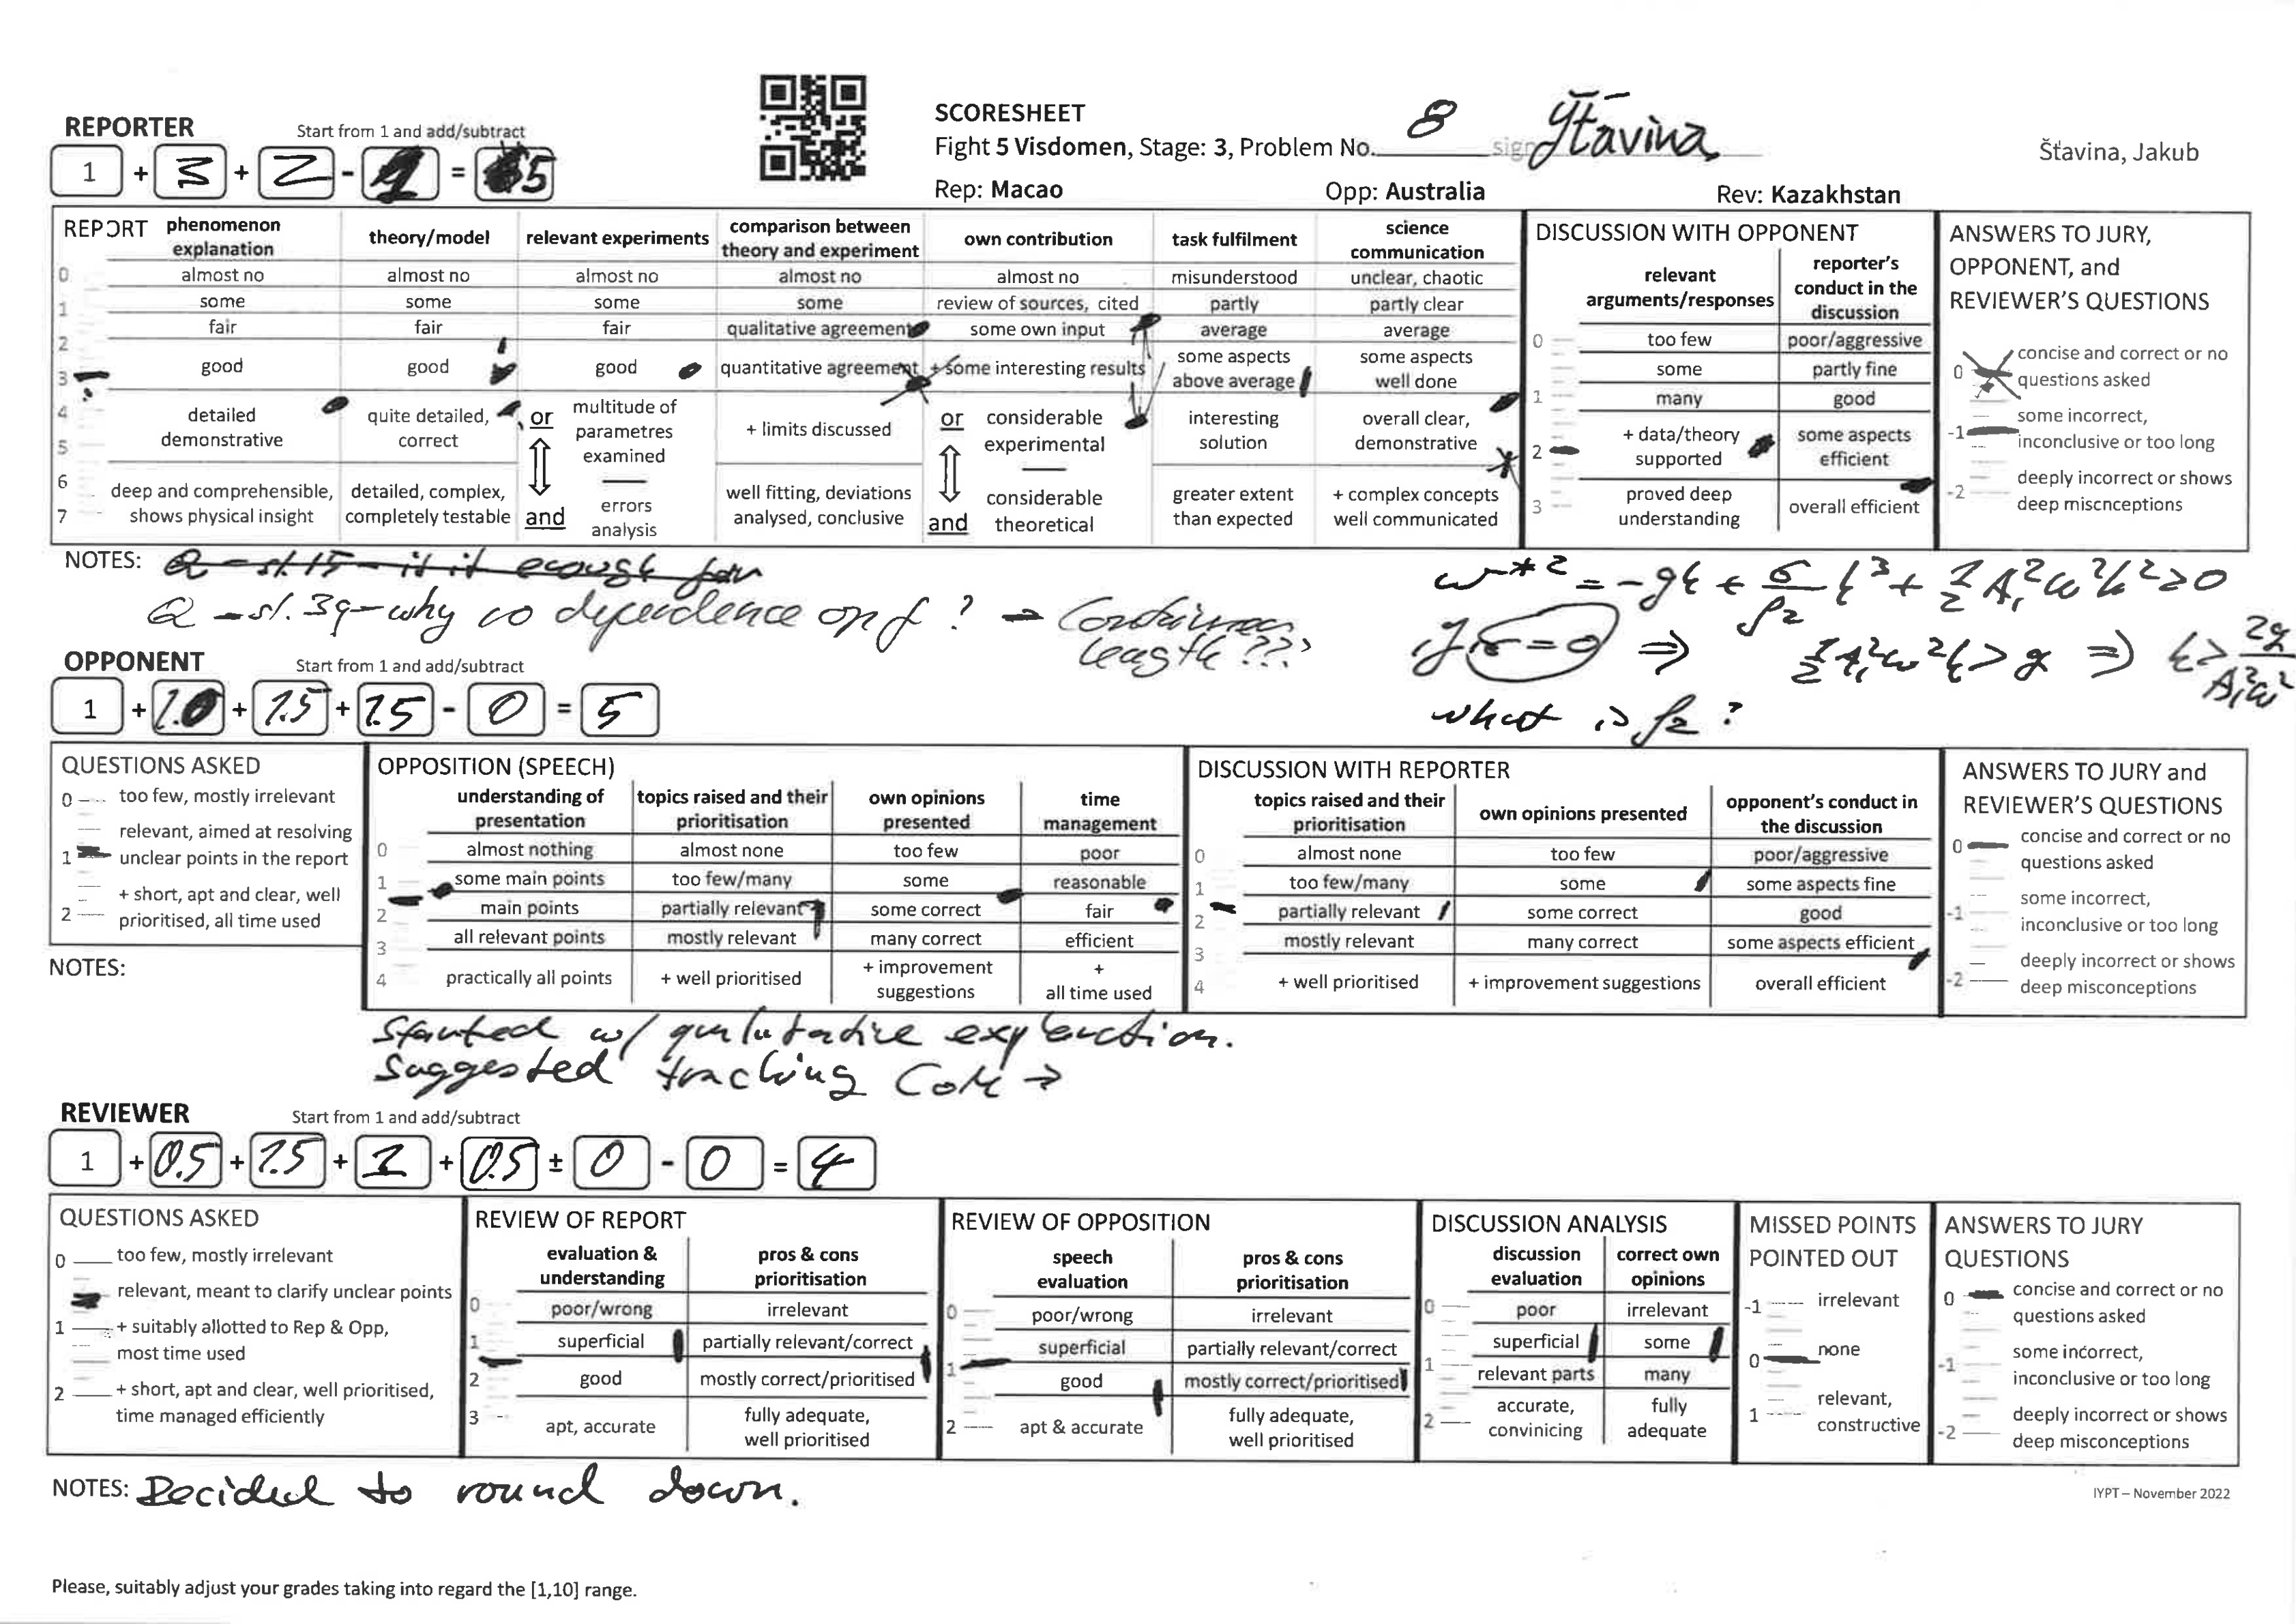 SCORESHEET
Fight 5 Visdomen, Stage: 3, Problem No. 8 Šťavina
Šťavina, Jakub
Rep: Macao Opp: Australia Rev: Kazakhstan
REPORTER Start from 1 and add/subtract
1 + 3 + 2 - 1 = 5
REPORT
phenomenon explanation | theory/model | relevant experiments | comparison between theory and experiment | own contribution | task fulfilment | science communication
0 almost no | almost no | almost no | almost no | almost no | misunderstood | unclear, chaotic
1 some | some | some | some | review of sources, cited | partly | partly clear
fair | fair | fair | qualitative agreement | some own input | average | average
2
3 good | good | good | quantitative agreement | + some interesting results | some aspects above average | some aspects well done
4 detailed demonstrative | quite detailed, correct | or multitude of parametres examined | + limits discussed | or considerable experimental | interesting solution | overall clear, demonstrative
5
6 deep and comprehensible, shows physical insight | detailed, complex, completely testable | and errors analysis | well fitting, deviations analysed, conclusive | and considerable theoretical | greater extent than expected | + complex concepts well communicated
7
DISCUSSION WITH OPPONENT
relevant arguments/responses | reporter's conduct in the discussion
0 too few | poor/aggressive
some | partly fine
1 many | good
2 + data/theory supported | some aspects efficient
3 proved deep understanding | overall efficient
ANSWERS TO JURY, OPPONENT, and REVIEWER'S QUESTIONS
0 concise and correct or no questions asked
-1 some incorrect, inconclusive or too long
-2 deeply incorrect or shows deep miscnceptions
NOTES: Q - sl. 15 - is it enough for
Q - sl. 39 - why no dependence on f? → Container length???
ω*² = -gk + σ/ρ₂ k³ + 1/2 A₁²ω²k² ≥ 0
If σ = 0 ⇒ 1/2 A₁²ω²k > g ⇒ k > 2g/A₁²ω²
what is ρ₂?
OPPONENT Start from 1 and add/subtract
1 + 1.0 + 1.5 + 1.5 - 0 = 5
QUESTIONS ASKED
0 too few, mostly irrelevant
1 relevant, aimed at resolving unclear points in the report
2 + short, apt and clear, well prioritised, all time used
OPPOSITION (SPEECH)
understanding of presentation | topics raised and their prioritisation | own opinions presented | time management
0 almost nothing | almost none | too few | poor
1 some main points | too few/many | some | reasonable
2 main points | partially relevant | some correct | fair
3 all relevant points | mostly relevant | many correct | efficient
4 practically all points | + well prioritised | + improvement suggestions | + all time used
DISCUSSION WITH REPORTER
topics raised and their prioritisation | own opinions presented | opponent's conduct in the discussion
0 almost none | too few | poor/aggressive
1 too few/many | some | some aspects fine
2 partially relevant | some correct | good
3 mostly relevant | many correct | some aspects efficient
4 + well prioritised | + improvement suggestions | overall efficient
ANSWERS TO JURY and REVIEWER'S QUESTIONS
0 concise and correct or no questions asked
-1 some incorrect, inconclusive or too long
-2 deeply incorrect or shows deep misconceptions
NOTES:
Started w/ qualitative explanation.
Suggested tracking CoM →
REVIEWER Start from 1 and add/subtract
1 + 0.5 + 1.5 + 1 + 0.5 ± 0 - 0 = 4
QUESTIONS ASKED
0 too few, mostly irrelevant
relevant, meant to clarify unclear points
1 + suitably allotted to Rep & Opp, most time used
2 + short, apt and clear, well prioritised, time managed efficiently
REVIEW OF REPORT
evaluation & understanding | pros & cons prioritisation
0 poor/wrong | irrelevant
1 superficial | partially relevant/correct
2 good | mostly correct/prioritised
3 apt, accurate | fully adequate, well prioritised
REVIEW OF OPPOSITION
speech evaluation | pros & cons prioritisation
0 poor/wrong | irrelevant
superficial | partially relevant/correct
1 good | mostly correct/prioritised
2 apt & accurate | fully adequate, well prioritised
DISCUSSION ANALYSIS
discussion evaluation | correct own opinions
0 poor | irrelevant
superficial | some
1 relevant parts | many
2 accurate, convinicing | fully adequate
MISSED POINTS POINTED OUT
-1 irrelevant
0 none
1 relevant, constructive
ANSWERS TO JURY QUESTIONS
0 concise and correct or no questions asked
-1 some incorrect, inconclusive or too long
-2 deeply incorrect or shows deep misconceptions
NOTES: Decided to round down.
IYPT – November 2022
Please, suitably adjust your grades taking into regard the [1,10] range.